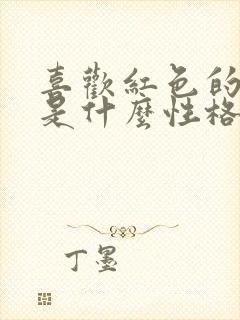 喜歡紅色的
是什麼性格
丁墨